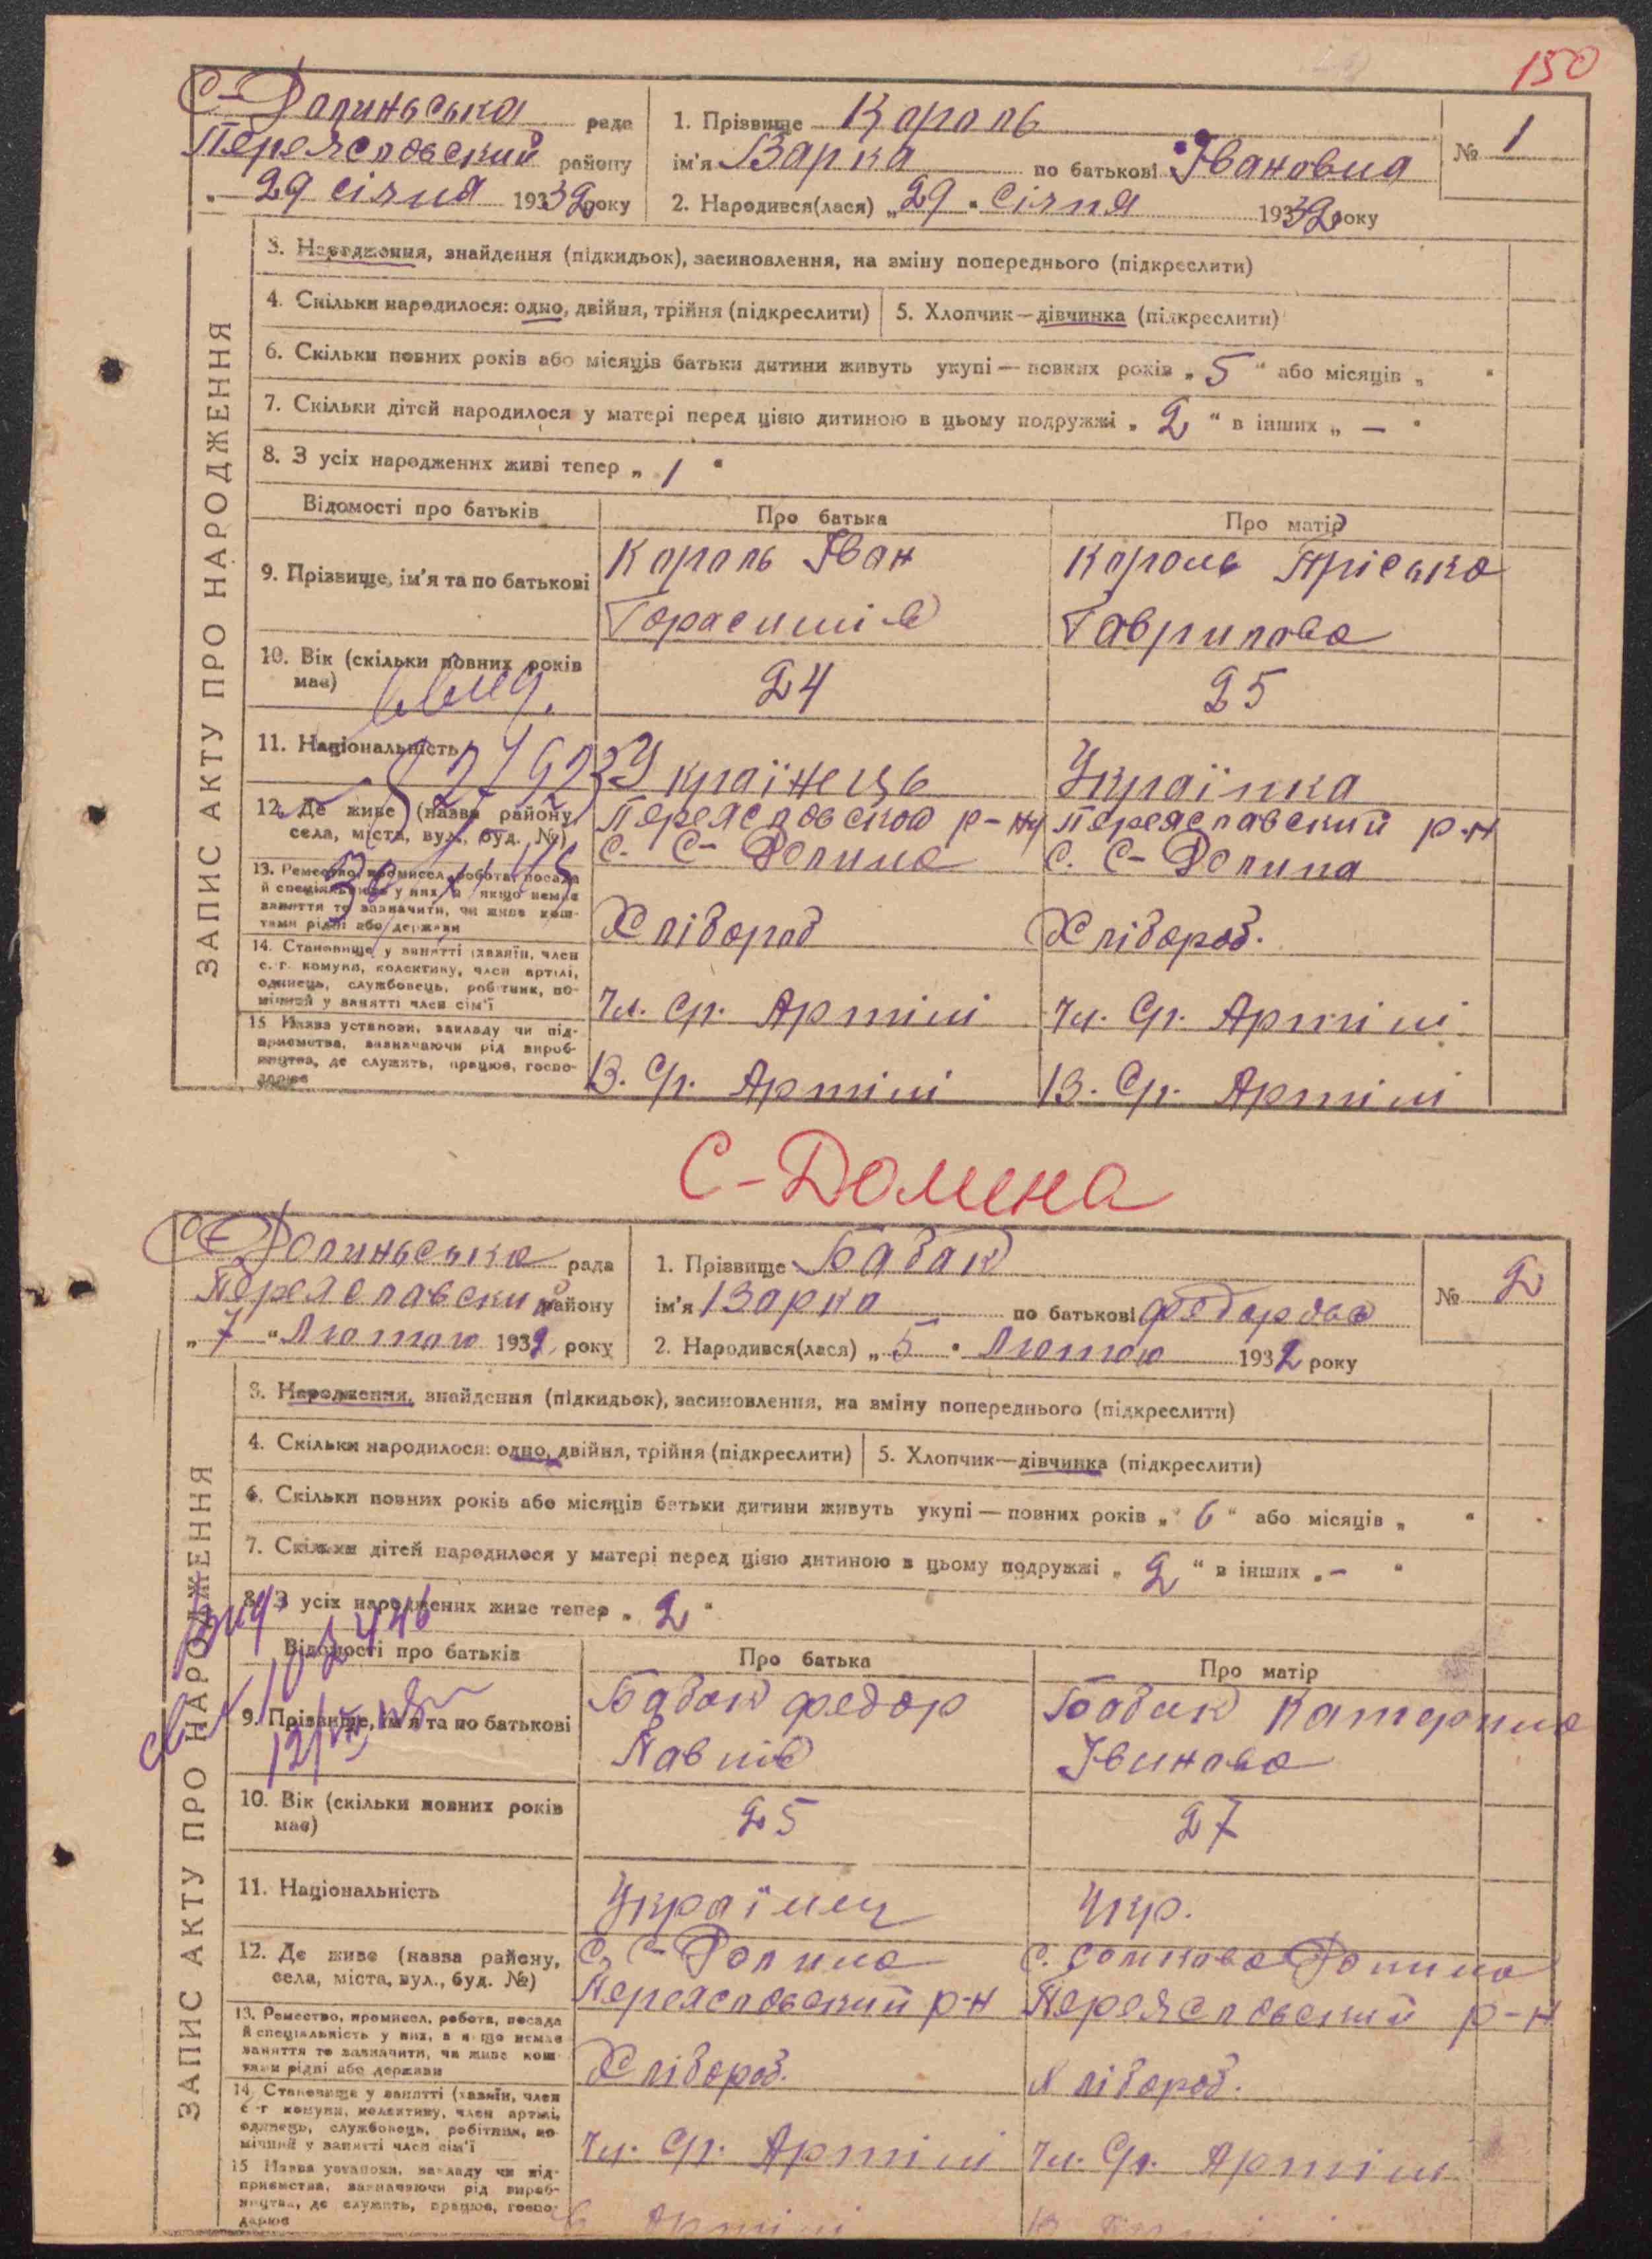 150
С-Долинська рада
Переяславський району
"29 січня 1932 року
1. Прізвище Король
ім'я Варка по батькові Івановна
2. Народився(лася) „29" Січня 1932 року
№ 1
ЗАПИС АКТУ ПРО НАРОДЖЕННЯ
3. Народження, знайдення (підкидьок), засиновлення, на зміну попереднього (підкреслити)
4. Скільки народилося: одно, двійня, трійня (підкреслити)
5. Хлопчик—дівчинка (підкреслити)
6. Скільки повних років або місяців батьки дитини живуть укупі — повних років „5" або місяців „ "
7. Скільки дітей народилося у матері перед цією дитиною в цьому подружжі „2" в інших „—"
8. З усіх народжених живі тепер „1"
Відомості про батьків
Про батька
Про матір
9. Прізвище, ім'я та по батькові
Король Іван
Герасимів
Король Пріська
Гаврилова
10. Вік (скільки повних років
має)
24
25
11. Національність
Українець
Українка
12. Де живе (назва району,
села, міста, вул., буд. №)
Переясловской р-ну
с. С-Долина
Переяславский р-н
с. С-Долина
13. Ремество, промисел, робота, посада
й спеціяльність у них, а якщо немає
заняття то зазначити, чи живе кош-
тами рідні або держави
Хлібороб
Хлібороб.
14. Становище у занятті (хазяїн, член
с.-г. комуни, колективу, член артілі,
одинець, службовець, робітник, по-
мічний у занятті член сім'ї
Чл. Ср. Артілі
Чл. Ср. Артілі
15. Назва установи, закладу чи під-
приємства, зазначаючи рід вироб-
ництва, де служить, працює, госпо-
дарює
В. Ср. Артілі
В. Ср. Артілі
С-Долина
С-Долинська рада
Переяславский району
„7" Лютого 1932 року
1. Прізвище Бабак
ім'я Варка по батькові Федорова
2. Народився(лася) „5" Лютого 1932 року
№ 2
ЗАПИС АКТУ ПРО НАРОДЖЕННЯ
3. Народження, знайдення (підкидьок), засиновлення, на зміну попереднього (підкреслити)
4. Скільки народилося: одно, двійня, трійня (підкреслити)
5. Хлопчик—дівчинка (підкреслити)
6. Скільки повних років або місяців батьки дитини живуть укупі — повних років „6" або місяців „ "
7. Скільки дітей народилося у матері перед цією дитиною в цьому подружжі „2" в інших „-"
8. З усіх народжених живе тепер „2"
Відомості про батьків
Про батька
Про матір
9. Прізвище, ім'я та по батькові
Бабак Федор
Павлів
Бабак Катерина
Іванова
10. Вік (скільки повних років
має)
25
27
11. Національність
Українец
Укр.
12. Де живе (назва району,
села, міста, вул., буд. №)
С. С-Долина
Переясловский р-н
с. Сомкова Долина
Переясловский р-н
13. Ремество, промисел, робота, посада
й спеціяльність у них, а якщо немає
заняття то зазначити, чи живе кош-
тами рідні або держави
Хлібороб.
Хлібороб.
14. Становище у занятті (хазяїн, член
с-г комуни, колективу, член артілі,
одинець, службовець, робітник, по-
мічний у занятті член сім'ї
Чл. Ср. Артілі
Чл. Ср. Артілі
15 Назва установи, закладу чи під-
приємства, зазначаючи рід вироб-
ництва, де служить, працює, госпо-
дарює
Артілі